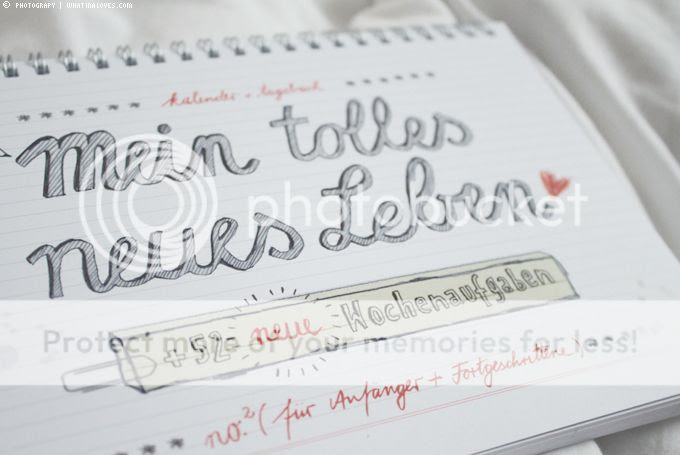 © PHOTOGRAPY | WHATINALOVES.COM
kalender + tagebuch
mein tolles
neues Leben.
+ 52 - neue Wochenaufgaben
no.2 (für Anfänger + Fortgeschrittene)
photobucket
Protect more of your memories for less!